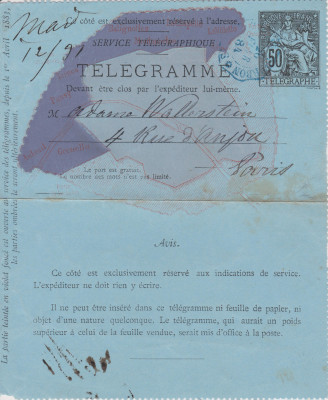 Mai
12/91
Ce côté est exclusivement réservé à l'adresse.
SERVICE TÉLÉGRAPHIQUE
TÉLÉGRAMME
Devant être clos par l'expéditeur lui-même.
Madame Wallerstein
4 Rue d'anjou
Paris
Le port est gratuit.
Le nombre des mots n'est pas limité.
50
TÉLÉGRAPHE
La partie teintée en violet foncé est ouverte au service des télégrammes, depuis le 1er Avril 1885,
Avis.
Ce côté est exclusivement réservé aux indications de service.
L'expéditeur ne doit rien y écrire.
Il ne peut être inséré dans ce télégramme ni feuille de papier, ni
objet d'une nature quelconque. Le télégramme, qui aurait un poids
supérieur à celui de la feuille vendue, serait mis d'office à la poste.